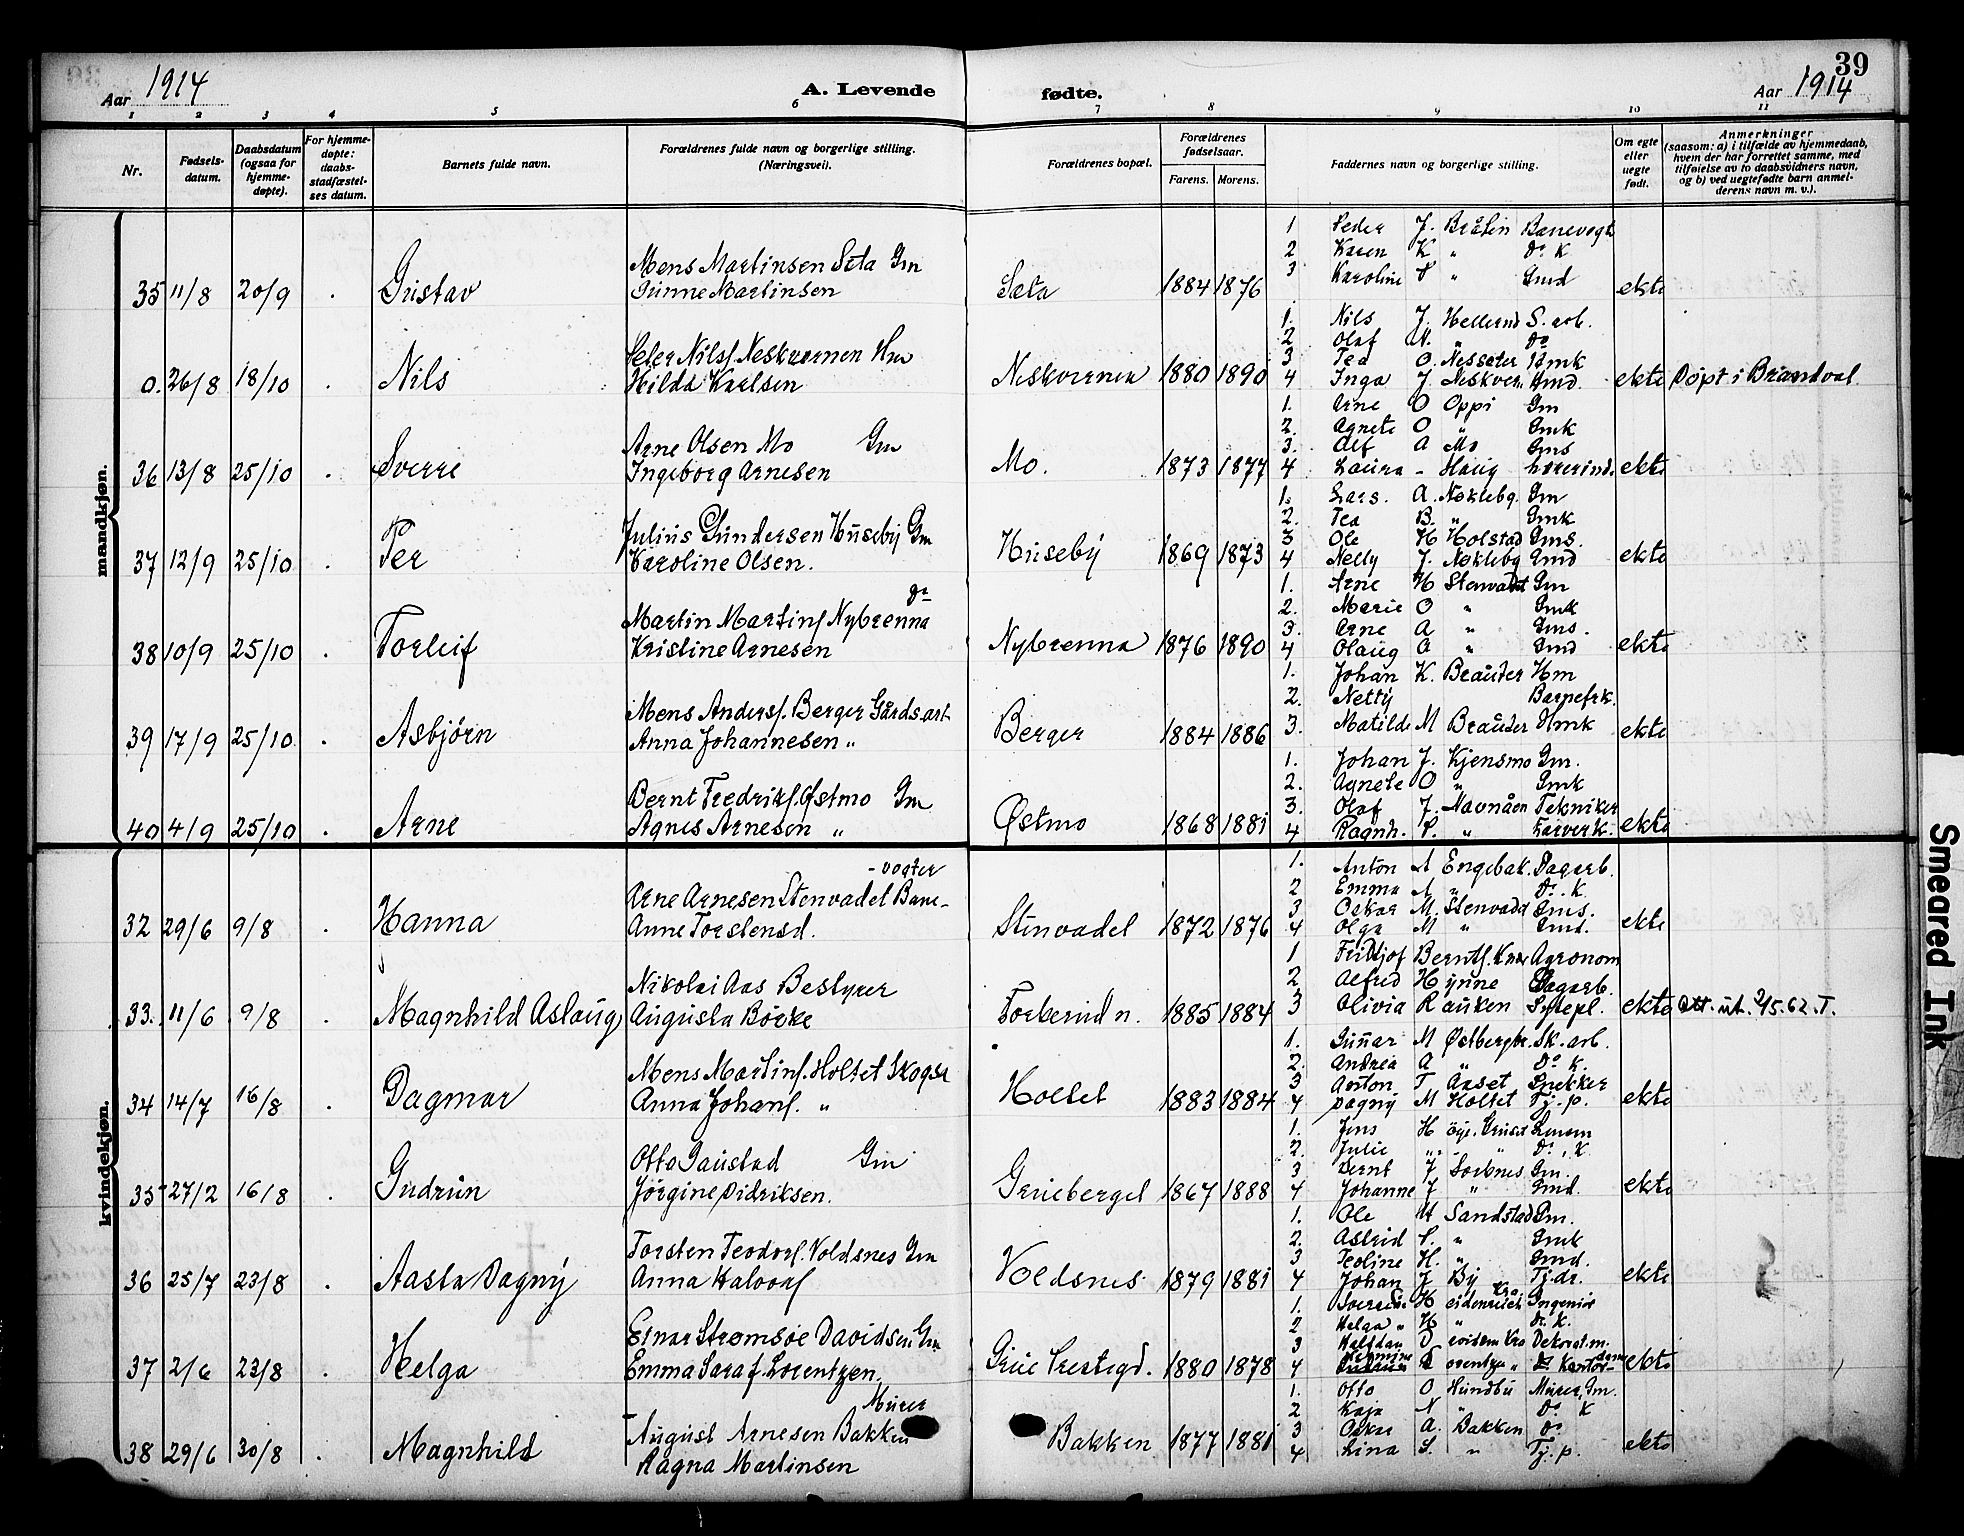 39
Aar 1914
A. Levende
fødte.
Aar 1914
1 2 3 4 5 6 7 8 9 10 11
Nr.
Fødsels-
datum.
Daabsdatum
(ogsaa for
hjemme-
døpte).
For hjemme-
døpte:
daabs-
stadfæstel-
ses datum.
Barnets fulde navn.
Forældrenes fulde navn og borgerlige stilling.
(Næringsvei).
Forældrenes bopæl.
Forældrenes
fødselsaar.
Farens. Morens.
Faddernes navn og borgerlige stilling.
Om egte
eller
uegte
født.
Anmerkninger
(saasom: a) i tilfælde av hjemmedaab,
hvem der har forrettet samme, med
tilføielse av to daabsvidners navn,
og b) ved uegtefødte barn anmel-
derens navn m. v.).
mandkjøn.
1 Peder J. Bråten Banevogt
2 Karen K " Do K
Mens Martinsen Sæta Gm
3 Karoline P " Gmd
35 11/8 20/9 . Gustav Gunne Martinsen Sæta 1884 1876 ekte
1. Nils J. Hellerud S. arb.
2 Olaf N. " Do
Peter Nilsf. Neskvernen Hm
3 Tea O. Nessæter Hmk
0. 26/8 18/10 . Nils Hilda Karlsen Neskvernen 1880 1890
4 Inga J. Neskvern Hmd. ekte Døpt i Brandval
1. Arne O Oppi Gm
2. Agnete O " Gmk
Arne Olsen Mo Gm
3. Alf A Mo Gms
36 13/8 25/10 . Sverre Ingeborg Arnesen Mo. 1873 1877
4 Laura - Haug Lærerind. ekte
1. Lars. A. Nøklebg. Gm
2. Tea B. " Gmk
Julius Gundersen Huseby Gm
3 Ole H Holstad Gms.
37 12/9 25/10 . Per Karoline Olsen. Huseby 1869 1873
4 Nelly J. Nøklebg Gmd ekte
1. Arne H Stenvadet Gm
2. Marie O " Gmk
Do
Martin Martinf. Nybrenna
3. Arne A " Gms.
38 10/9 25/10 . Torleif Kristine Arnesen Nybrenna 1876 1890
4 Olaug A " Gmd ekte
1. Johan K. Brauter Hm
2. Netty Barnefrk.
Mens Andersf. Berger Gårdsarb
3. Matilde M Brauter Hmk
39 17/9 25/10 . Asbjørn Anna Johannesen " Berger 1884 1886 ekte
1. Johan J. Kjensmo Gm.
2. Agnete O " Gmk
Bernt Fredrikf. Østmo Gm
3. Olaf J. Navnåen Tekniker
40 4/9 25/10 . Arne Agnes Arnesen " Østmo 1868 1881
4 Ragnh. P. " ekte
kvindekjøn.
1. Anton A Engebak. Dagarb.
2 Emma A " Do. K
-vogter
Arne Arnesen Stenvadet Bane-
3 Oskar M. Stenvadet Gms.
32 29/6 9/8 . Hanna Anne Torstensd. Stenvadet 1872 1876
4 Olga M " Gmd. ekte
1 Fridtjof Berntf. Agronom
2 Alfred Hynne Dagarb.
Nikolai Aas Bestyrer
33. 11/6 9/8 . Magnhild Aslaug Augusta Børke Torberud n. 1885 1884
3 Olivia Rauken Sykepl. ekte Att. ut. 2/5.62. T.
1. Gunnar M Østbergbr. Sk. arb.
2. Andrea A " Do K.
Mens Martinf. Holtet Skogsa
3 Anton T Aaset Snekker
34 14/7 16/8 . Dagmar Anna Johanf. " Holtet 1883 1884
4 Dagny M Holtet Tj. p. ekte
1. Jens H Lensm
2. Julie " " Do, K
Otto Paustad Gm
3 Bernt J Sorknes Gm.
35 27/2 16/8 . Gudrun Jørgine Didriksen. Grueberget 1867 1888
4 Johanne J " Gmd. ekte
1. Ole H Sandstad Gm.
2. Astrid P. " Gmk
Torsten Teodorf. Voldsnes Gm
3 Teoline H. " Gmd.
36 25/7 23/8 . Aasta Dagny Anna Halvorsf Voldsnes 1879 1881
4 Johan J By Tj. dr. ekte
1. H eidenreich Kra. Ingeniør
2 Helga " H " Do. K.
Einar Strømsøe Davidsen Gm
3 Halfdan D avidsen Kra Dekorat. m.
37 2/6 23/8 . Helga Emma Saraf. Lorentzen. Grue Prestegd. 1880 1878
4 L orentzen " Kontordame ekte
1. Otto O Hundbu Murer, Gm.
2 Kaja N " Do K
Murer
August Arnesen Bakken
3 Oskar A. Bakken Do
38 29/6 30/8 . Magnhild Ragna Martinsen Bakken 1877 1881
4 Lina S. " Tj. p. ekte
Smeared Ink